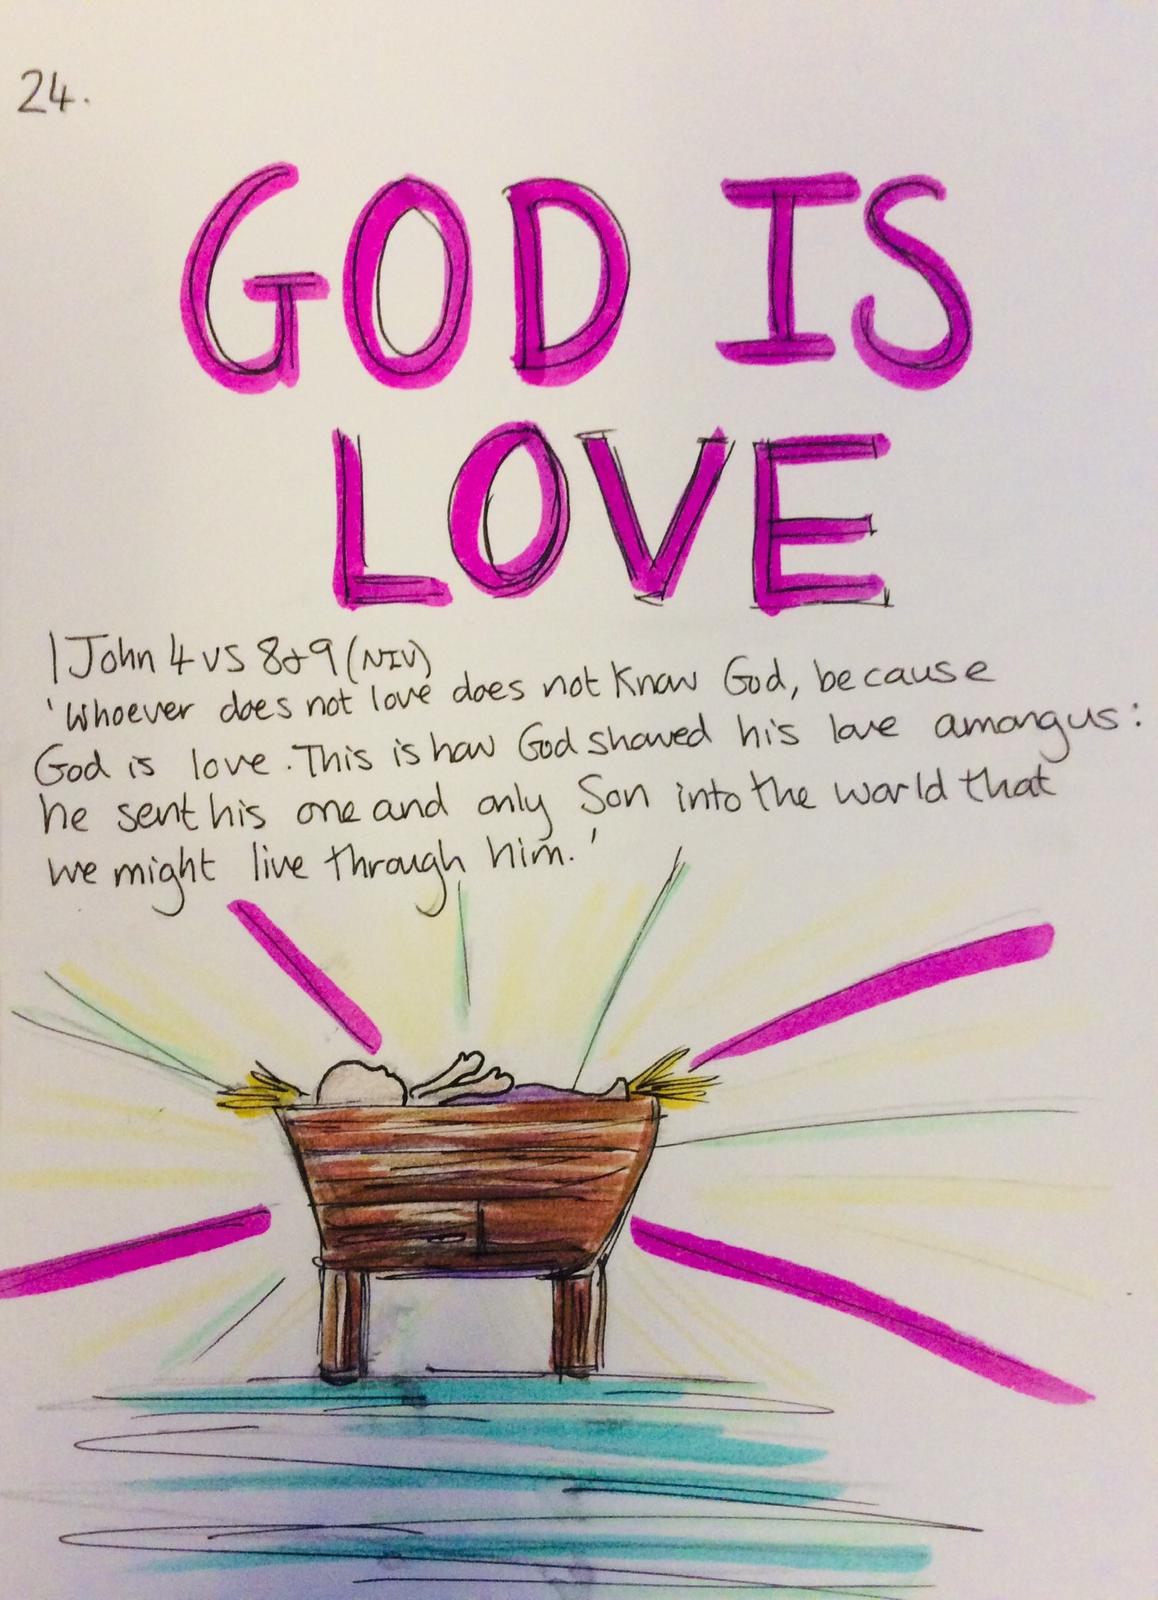 24.
GOD IS
LOVE
1 John 4 vs 8&9 (NIV)
'Whoever does not love does not know God, because
God is love. This is how God showed his love among us:
he sent his one and only Son into the world that
we might live through him.'